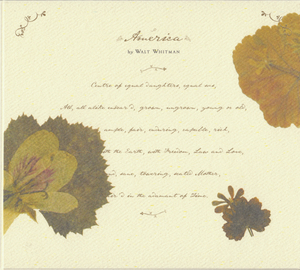 America
by WALT WHITMAN
Centre of equal daughters, equal sons,
All, all alike endear'd, grown, ungrown, young or old,
ample, fair, enduring, capable, rich,
the Earth, with Freedom, Law and Love,
and, sane, towering, seated Mother,
'd in the adamant of Time.